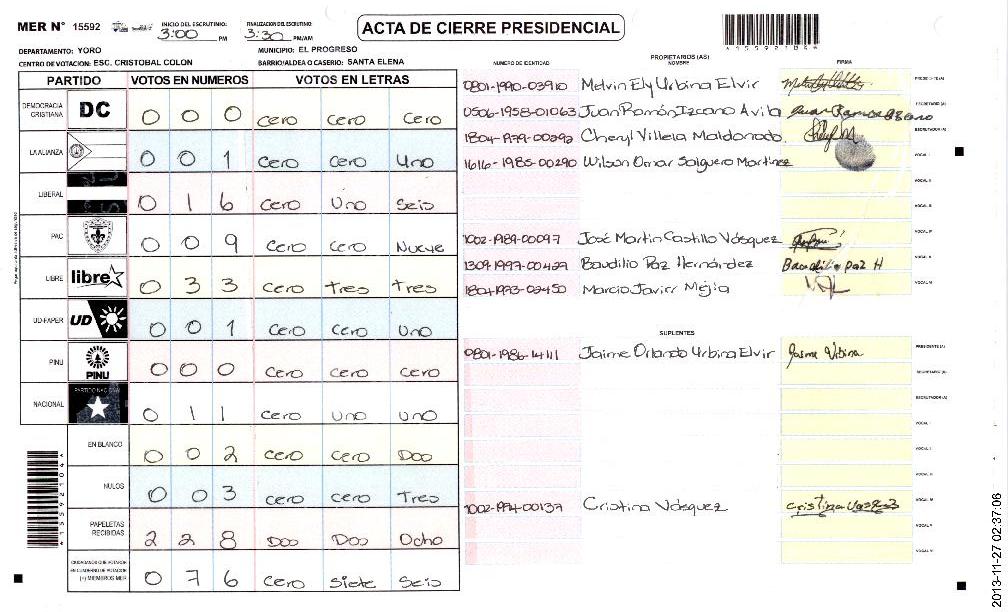 MER N° 15592 INICIO DEL ESCRUTINIO: 3:00 PM FINALIZACION DEL ESCRUTINIO: 3:30 PM/AM
ACTA DE CIERRE PRESIDENCIAL
DEPARTAMENTO: YORO MUNICIPIO: EL PROGRESO
CENTRO DE VOTACION: ESC. CRISTOBAL COLON BARRIO/ALDEA O CASERIO: SANTA ELENA
PARTIDO VOTOS EN NUMEROS VOTOS EN LETRAS
DEMOCRACIA CRISTIANA DC 0 0 0 cero cero cero
LA ALIANZA 0 0 1 cero cero uno
LIBERAL 0 1 6 cero uno seis
PAC 0 0 9 cero cero Nueve
LIBRE libre 0 3 3 cero tres tres
UD-FAPER UD 0 0 1 cero cero uno
PINU PINU 0 0 0 cero cero cero
NACIONAL PARTIDO NACIONAL 0 1 1 cero uno uno
EN BLANCO 0 0 2 cero cero Dos
NULOS 0 0 3 cero cero Tres
PAPELETAS RECIBIDAS 2 2 8 Dos Dos Ocho
CIUDADANOS QUE VOTARON EN CUADERNO DE VOTACION (+) MIEMBROS MER 0 7 6 cero siete seis
PROPIETARIOS (AS)
NUMERO DE IDENTIDAD NOMBRE FIRMA
0801-1990-03910 Melvin Ely Urbina Elvir PRESIDENTE (A)
0506-1958-01063 Juan Ramón Izcano Avila SECRETARIO (A)
1804-1979-00392 Cheryl Villela Maldonado ESCRUTADOR (A)
1616-1985-00290 Wilson Omar Salguero Martinez VOCAL I
VOCAL II
VOCAL III
1002-1989-00097 José Martin Castillo Vásquez VOCAL IV
1309-1997-00429 Baudilio Paz Hernández Baudilio paz H VOCAL V
1804-1973-03450 Marcio Javier Mejia VOCAL VI
SUPLENTES
0801-1986-14111 Jaime Orlando Urbina Elvir Jaime Urbina PRESIDENTE (A)
SECRETARIO (A)
ESCRUTADOR (A)
VOCAL I
VOCAL II
VOCAL III
1002-1974-00137 Cristina Vásquez cristina Vasquez VOCAL IV
VOCAL V
VOCAL VI
2013-11-27 02:37:06